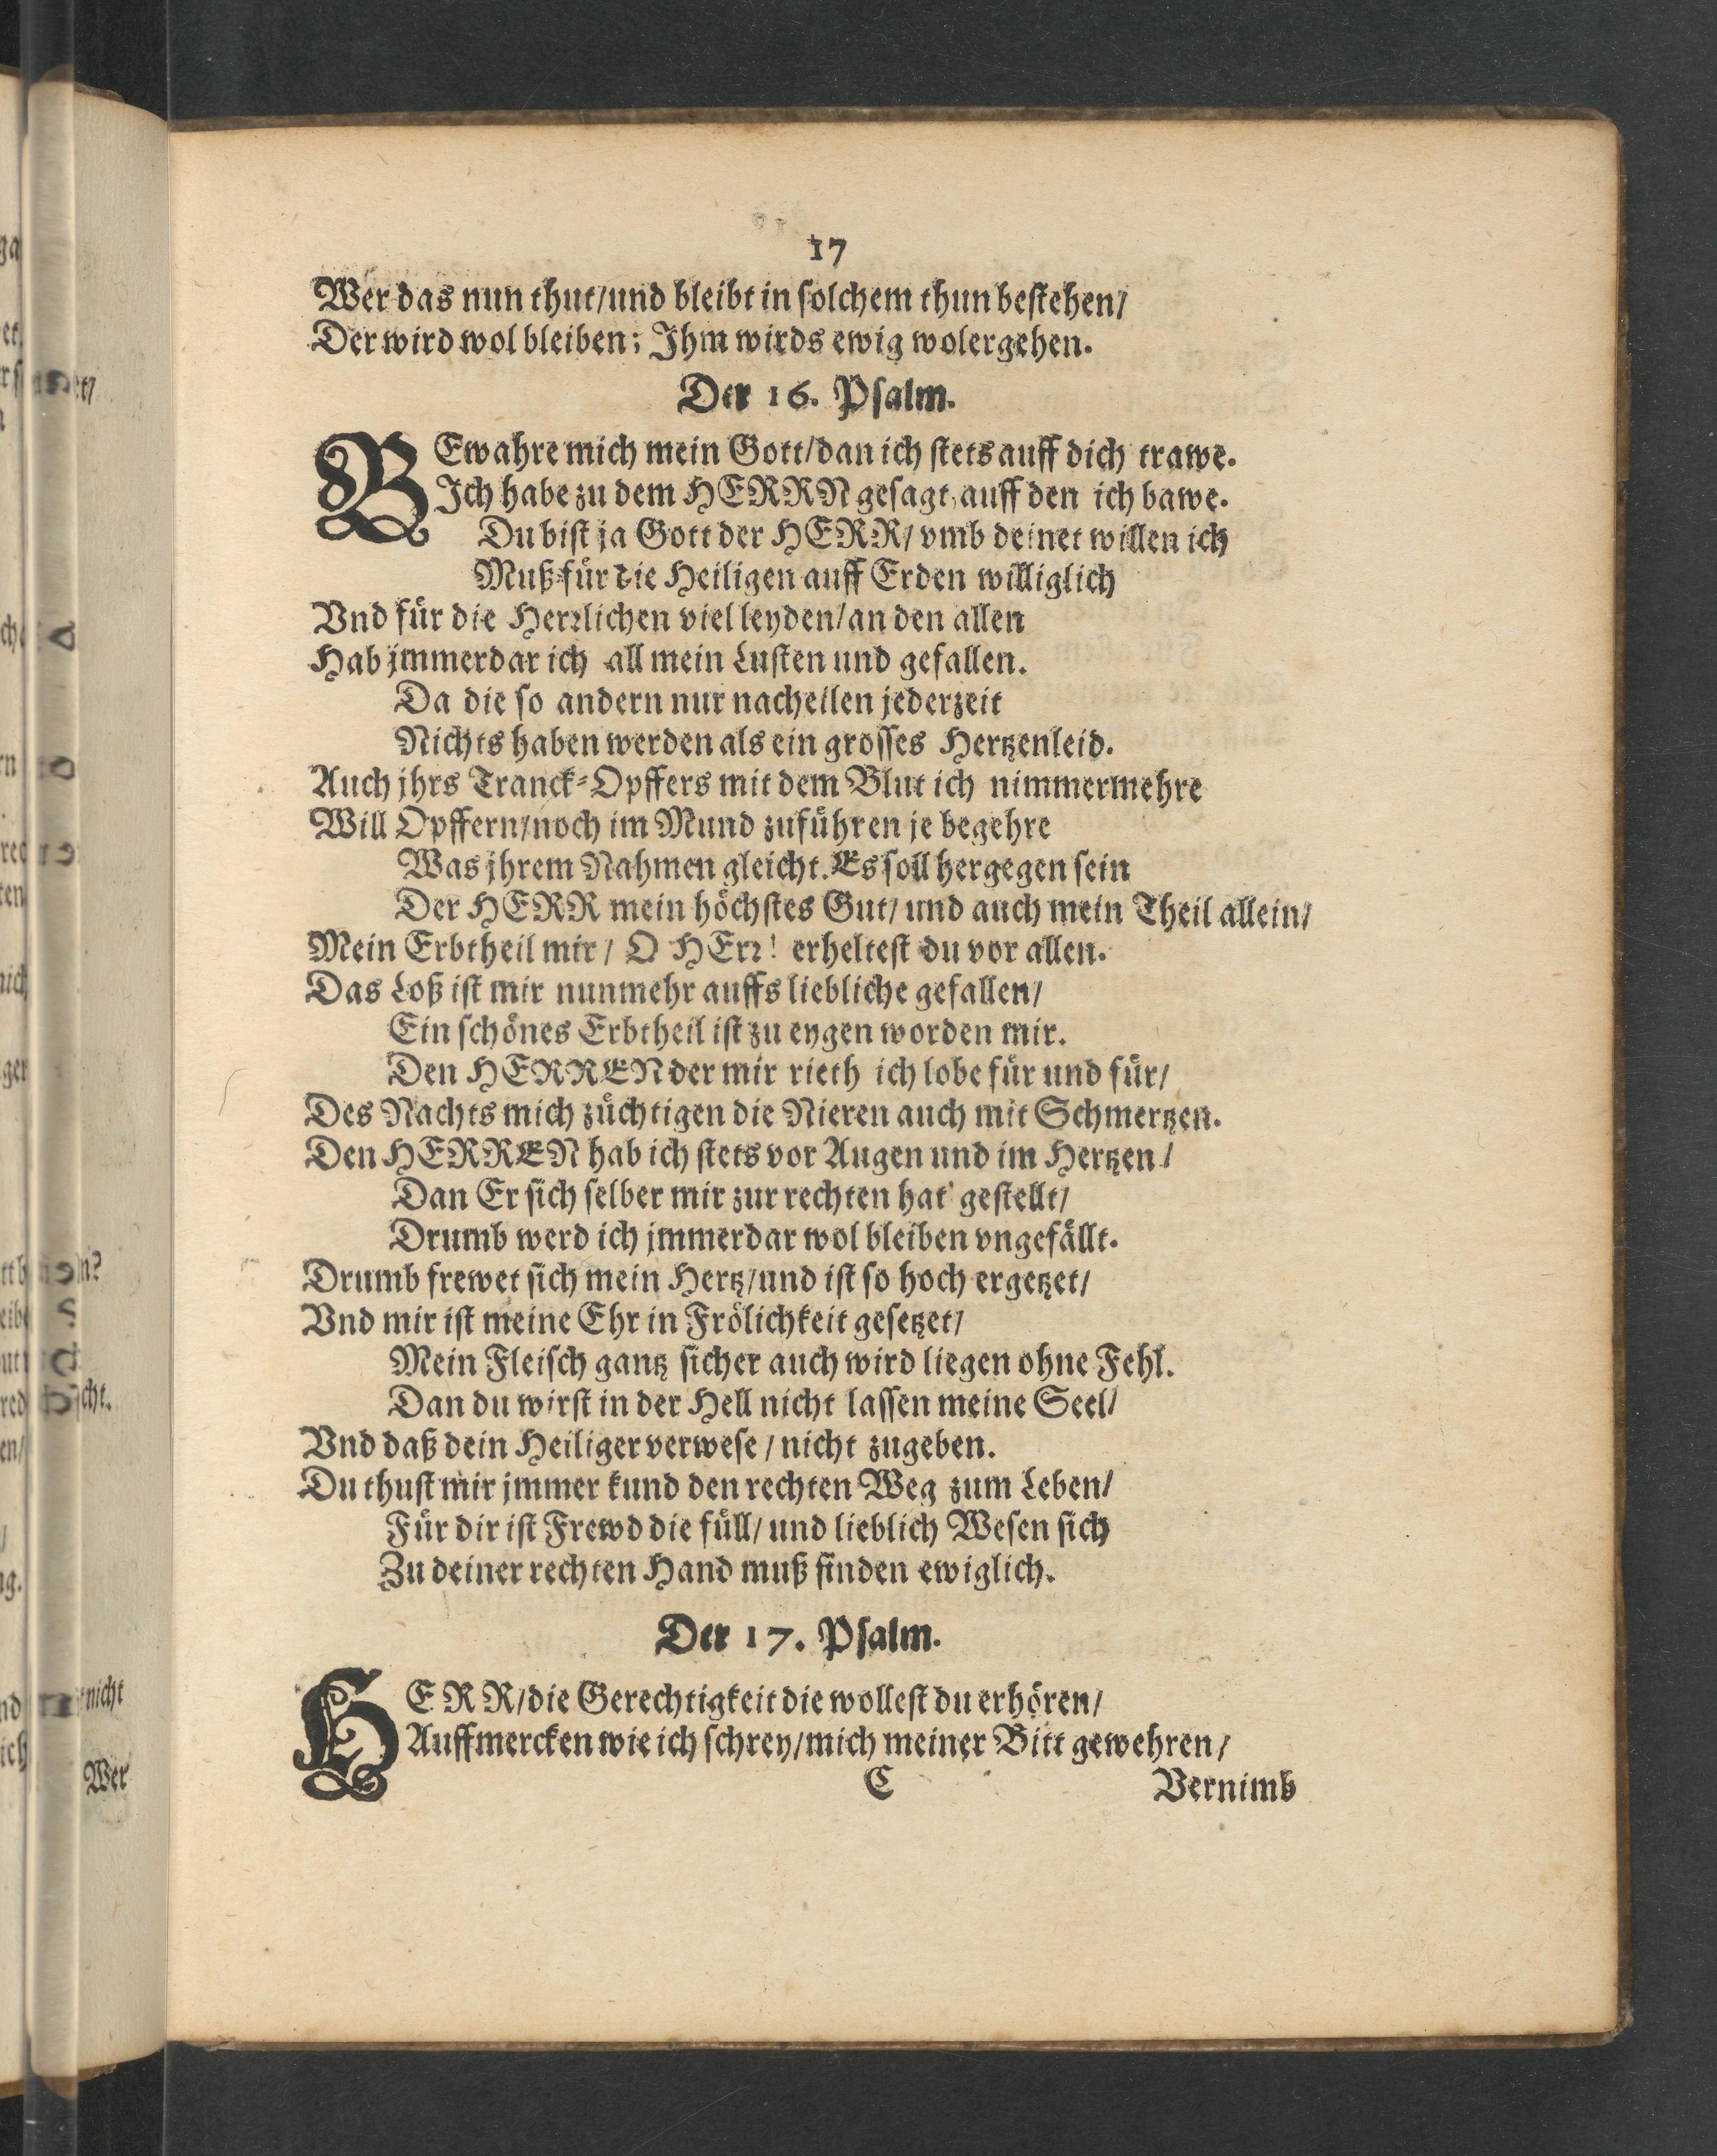 17
Wer das nun thut/und bleibt in solchem thun bestehen/
Der wird wol bleiben; Ihm wirds ewig wolergehen.
Der 16. Psalm.
BEwahre mich mein Gott/dan ich stets auff dich trawe.
Ich habe zu dem HERRN gesagt, auff den ich bawe.
Du bist ja Gott der HERR/ vmb deinet willen ich
Muß für die Heiligen auff Erden williglich
Vnd für die Herrlichen viel leyden/an den allen
Hab jmmerdar ich all mein Lusten und gefallen.
Da die so andern nur nacheilen jederzeit
Nichts haben werden als ein grosses Hertzenleid.
Auch jhrs Tranck-Opffers mit dem Blut ich nimmermehre
Will Opffern/noch im Mund zuführen je begehre
Was jhrem Nahmen gleicht. Es soll hergegen sein
Der HERR mein höchstes Gut/ und auch mein Theil allein/
Mein Erbtheil mir/ O HErr! erheltest du vor allen.
Das Loß ist mir nunmehr auffs liebliche gefallen/
Ein schönes Erbtheil ist zu eygen worden mir.
Den HERREN der mir rieth ich lobe für und für/
Des Nachts mich züchtigen die Nieren auch mit Schmertzen.
Den HERREN hab ich stets vor Augen und im Hertzen/
Dan Er sich selber mir zur rechten hat gestellt/
Drumb werd ich jmmerdar wol bleiben vngefällt.
Drumb frewet sich mein Hertz/und ist so hoch ergetzet/
Vnd mir ist meine Ehr in Frölichkeit gesetzet/
Mein Fleisch gantz sicher auch wird liegen ohne Fehl.
Dan du wirst in der Hell nicht lassen meine Seel/
Vnd daß dein Heiliger verwese/ nicht zugeben.
Du thust mir jmmer kund den rechten Weg zum Leben/
Für dir ist Frewd die füll/ und lieblich Wesen sich
Zu deiner rechten Hand muß finden ewiglich.
Der 17. Psalm.
HERR/die Gerechtigkeit die wollest du erhören/
Auffmercken wie ich schrey/mich meiner Bitt gewehren/
C Vernimb
nicht
Wer